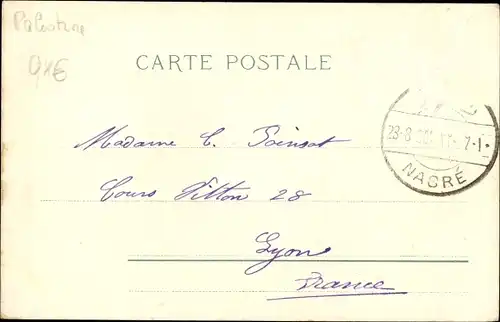 Palestine
91€
CARTE POSTALE
23-8
NAGRÉ
Madame C. Poinsot
Cours Vitton 28
Lyon
France